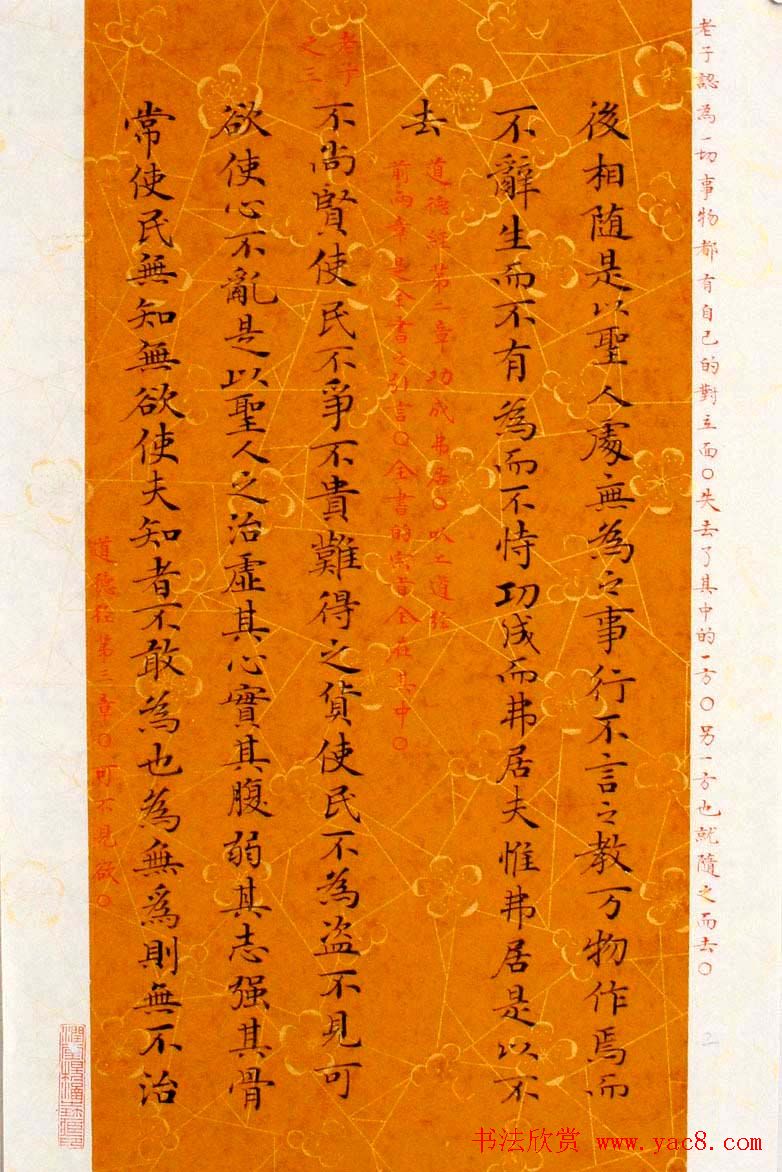 老子認為一切事物都有自己的對立面〇失去了其中的一方〇另一方也就隨之而去〇
後相随是以聖人處無為之事行不言之教万物作焉而
不辭生而不有為而不恃功成而弗居夫惟弗居是以不
去
道德經第二章功成弗居〇以上道經
前兩章是全書之引言〇全書的宗旨全在其中〇
老子
之三
不尚賢使民不爭不貴難得之貨使民不為盗不見可
欲使心不亂是以聖人之治虛其心實其腹弱其志强其骨
常使民無知無欲使夫知者不敢為也為無為則無不治
道德經第三章〇可不見欲〇
2
书法欣赏 www.yac8.com